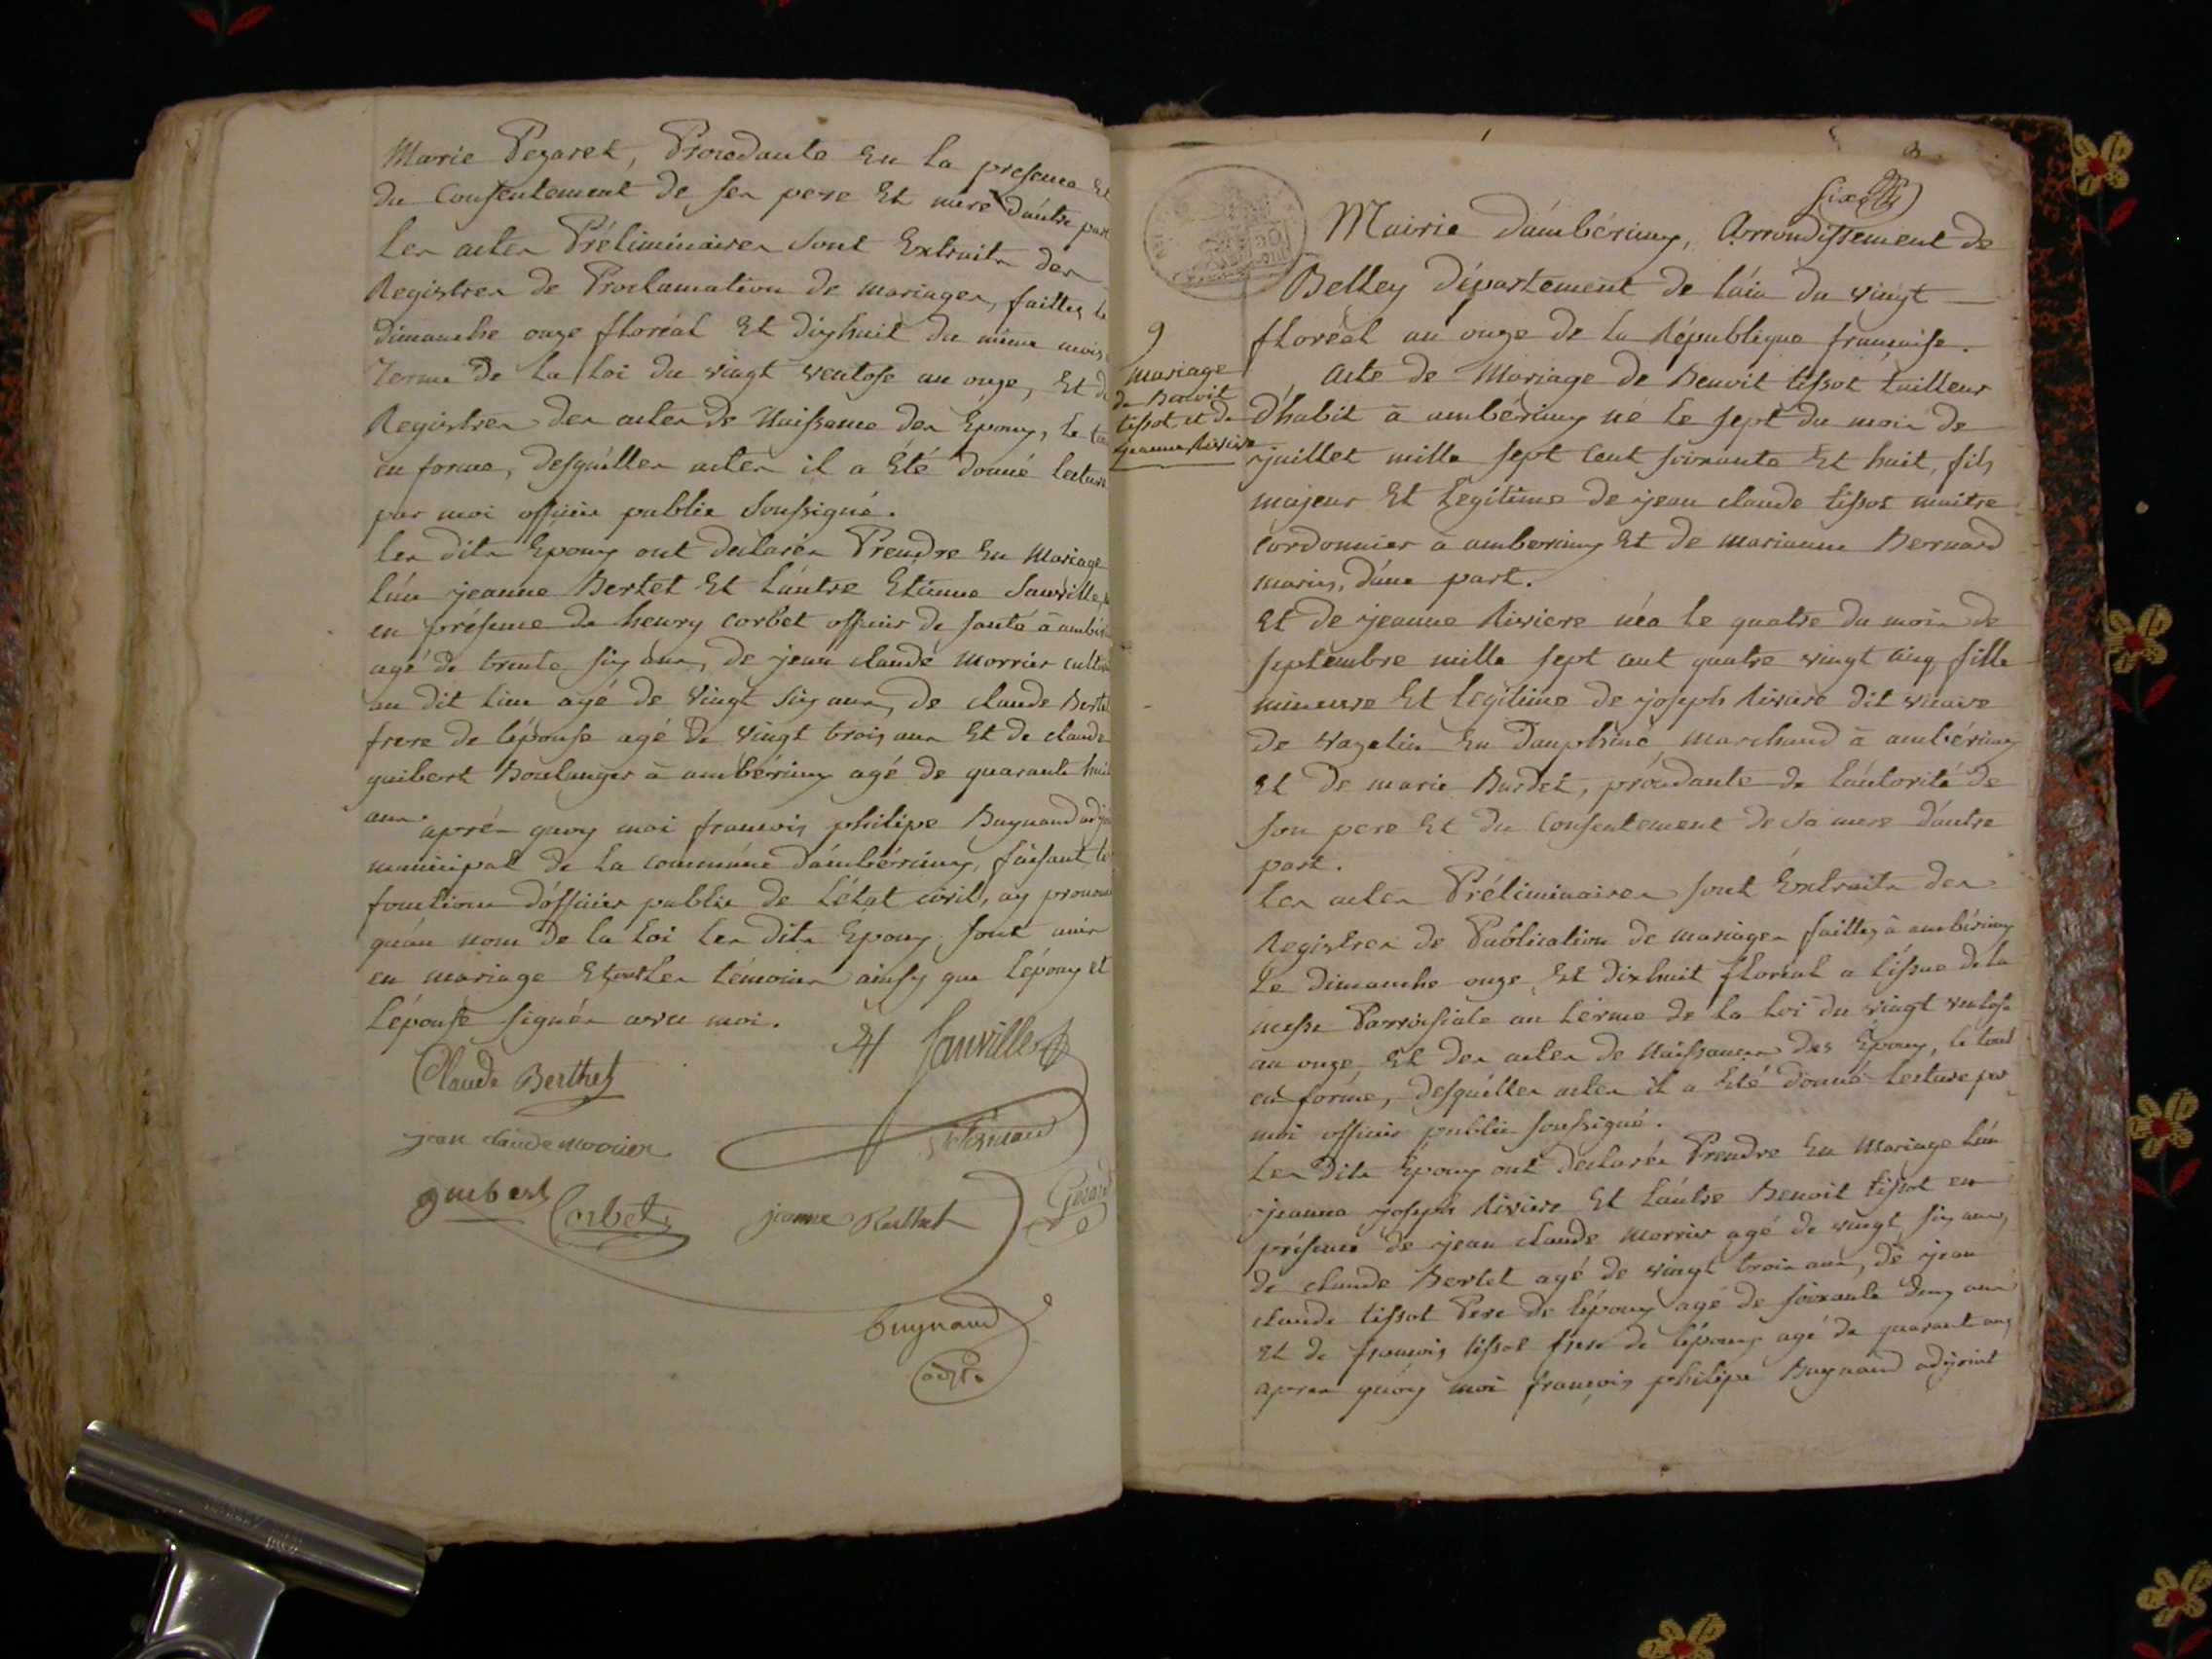 Marie Pezaret, Procédante En la presence Et
du Consentement de ses pere Et mere d'autre part
les actes Préliminaires Sont Extraits des
Registres de Proclamation de mariages, faittes le
dimanche onze floréal Et dixhuit du même mois
Terme de la Loi du vingt ventose an onze, Et de
Registres des actes de Naissance des Epoux, le tou
en forme, desquelles actes il a Eté donné lecture
par moi officier public Soussigné.
les dits Epoux ont déclarés Prendre En Mariage
l'un jeanne Bertet Et l'autre Etienne Sauville,
en présence de henry corbet officier de santé à ambé
agé de trente six ans, de jean claude Morrier cultiv
au dit lieu agé de vingt six ans, de claude Bertet
frere de l'épouse agé de vingt trois ans Et de claude
guibert Boulanger à ambérieux agé de quarante huit
ans après quoy moi francois philipe Buynand adjoi
municipal de la commune d'ambérieux, faisant les
fonctions d'officier public de l'état civil, ay prononc
qu'au nom de la Loi les dits Epoux sont unis
en mariage Et ont les témoins ainsy que l'époux et
l'épouse signés avec moi.
Sauville
Claude Berthet
jean claude morrier
guibert Corbet jeanne Berthet
Buynand
adjt
six
Mairie d'ambérieux, Arrondissement de
Belley département de l'ain du vingt
floréal an onze de la République française.
9
mariage
de Benoit
tissot et de
jeanne Riviere
Acte de Mariage de Benoit tissot tailleur
d'habit à ambérieux né le sept du mois de
juillet mille sept cent soixante Et huit, fils
majeur Et Legitime de jean claude tissot maitre
cordonnier a amberieux Et de marianne Bernard
mariés, d'une part.
Et de jeanne Riviere née le quatre du mois de
septembre mille sept cent quatre vingt cinq fille
mineure Et legitime de joseph Riviere dit vivare
de vazelin En Dauphiné marchand à ambérieux
Et de marie Burdet, procédante de l'autorité de
son pere Et du Consentement de sa mere d'autre
part.
les actes Préliminaires sont Extraits des
Registres de Publication de mariages faittes à ambérieux
le dimanche onze, Et dixhuit floréal a l'issue de la
messe Parroissiale au terme de la Loi du vingt ventose
an onze Et des actes de Naissances des Epoux, le tout
en forme, desquelles actes il a Eté donné lecture par
moi officier public soussigné.
les dits Epoux ont déclarés Prendre En Mariage l'un
jeanne joseph Riviere Et l'autre Benoit tissot en
présence de jean claude morrier agé de vingt six ans,
de claude Bertet agé de vingt trois ans, de jean
claude tissot Pere de l'époux agé de soixante deux ans
Et de francois tissot frere de l'époux agé de quarant ans
apres quoy moi françois philipe Buynand adjoint